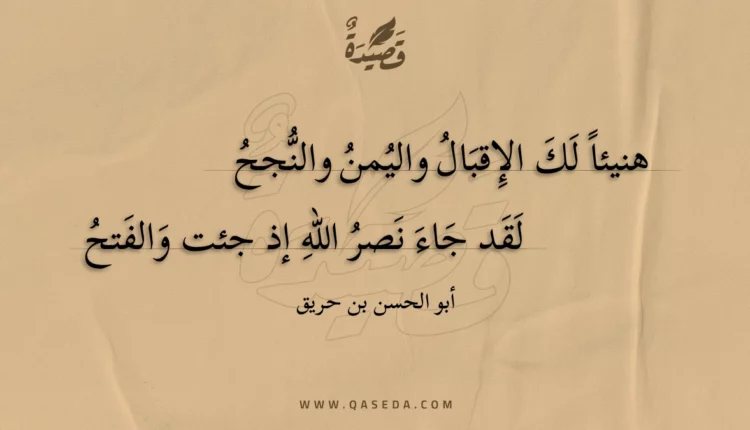 قَصِيدَةٌ
هنيئاً لَكَ الإِقبَالُ واليُمنُ والنُّجحُ
لَقَد جَاءَ نَصرُ اللهِ إذ جئت وَالفَتحُ
أبو الحسن بن حريق
WWW.QASEDA.COM